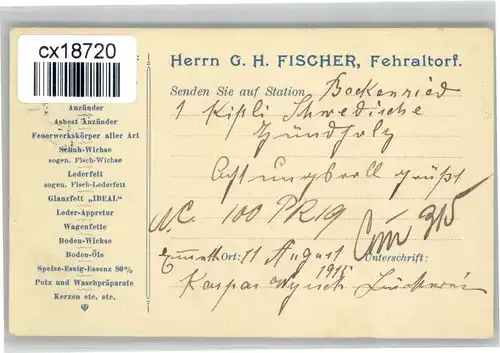 cx18720
Herrn G. H. FISCHER, Fehraltorf.
Senden Sie auf Station Beckenried
1 Kistli Schwedische
Zündholz
Achtungsvoll grüßt
N.C. 100 PR 19
315
Ort: 11 August 1915 Unterschrift:
Kaspar Wyrsch
Anzünder
Asbest Anzünder
Feuerwerkskörper aller Art
Schuh-Wichse
sogen. Fisch-Wichse
Lederfett
sogen. Fisch-Lederfett
Glanzfett „IDEAL“
Leder-Appretur
Wagenfette
Boden-Wichse
Boden-Öle
Speise-Essig-Essenz 80%
Putz und Waschpräparate
Kerzen etc. etc.